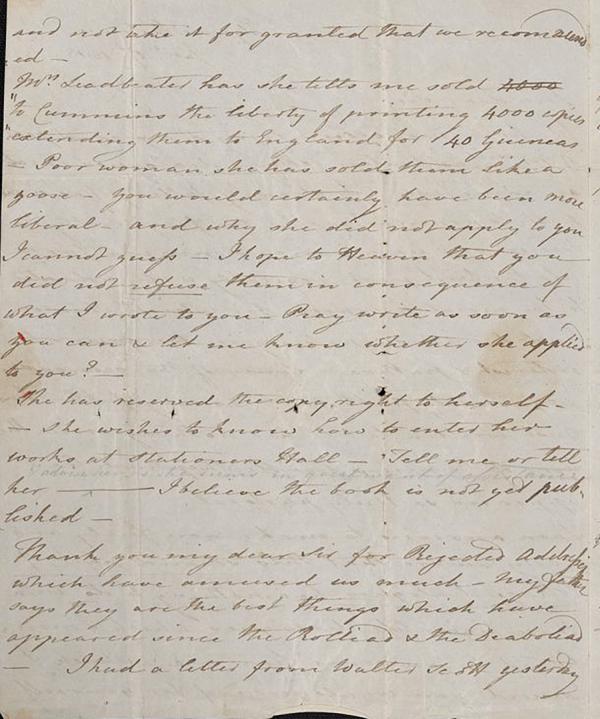 and not take it for granted that we recommend
ed —
Mrs Leadbeater has she tells me sold 4000
"to Cummins the liberty of printing 4000 copies
"extending them to England for 140 Guineas
— Poor woman she has sold them like a
goose — you would certainly have been more
liberal — and why she did not apply to you
I cannot guess — I hope to Heaven that you
did not refuse them in consequence of
what I wrote to you — Pray write as soon as
you can & let me know whether she applied
to you? —
She has reserved the copy right to herself —
— She wishes to know how to enter her
works at Stationers Hall — Tell me or tell
her — I believe the book is not yet pub-
lished —
Thank you my dear Sir for Rejected Addresses
which have amused us much — My father
says they are the best things which have
appeared since the Rolliad & the Diaboliad
— I had a letter from Walter Scott yesterday